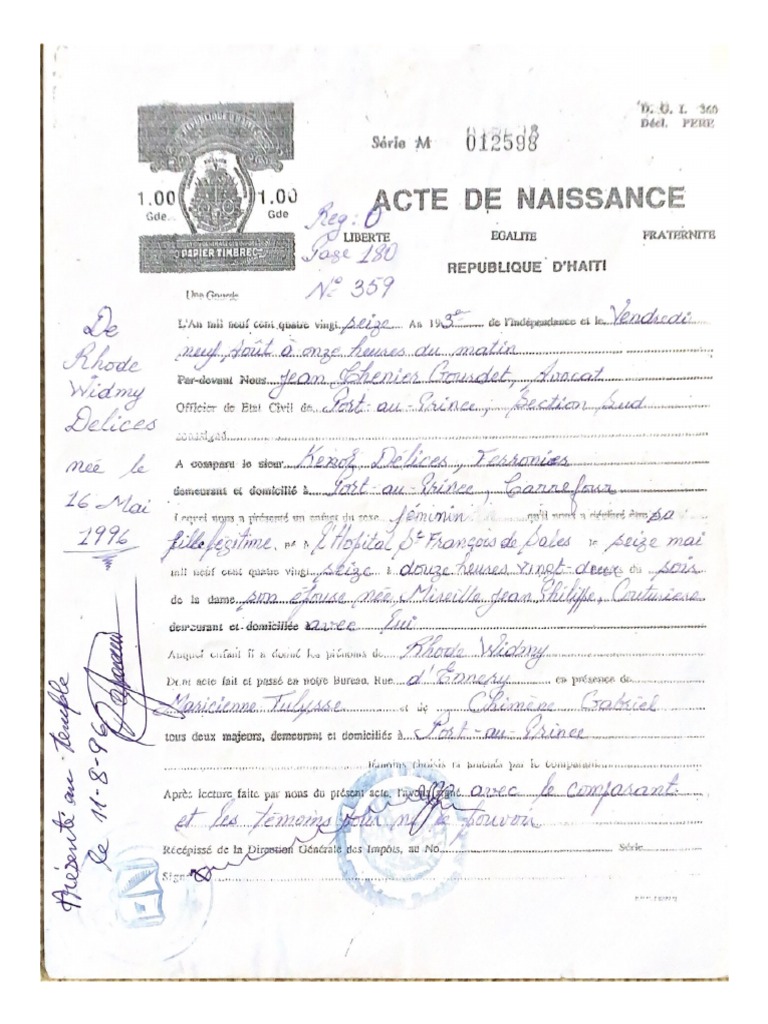 D. G. I. 360
Décl. PERE
Série M 012598
REPUBLIQUE D'HAITI
1.00 Gde
1.00 Gde
PAPIER TIMBRE
Une Gourde
ACTE DE NAISSANCE
LIBERTE EGALITE FRATERNITE
REPUBLIQUE D'HAITI
Reg: O
Page 180
No 359
De
Rhode
Widmy
Delices
née le
16 Mai
1996
L'An mil neuf cent quatre vingt seize An 193e de l'indépendance et le Vendredi
neuf Août à onze heures du matin
Par-devant Nous Jean Chenier Crousdet, Avocat
Officier de Etat Civil de Port-au-Prince, Section Sud
soussigné
A comparu le sieur Kenol Délices, Ferronier
demeurant et domicilié à Port-au-Prince, Carrefour
Lequel nous a présenté un enfant du sexe féminin qu'il nous a déclaré être sa
fille légitime, né à l'Hopital St François de Sales le seize mai
mil neuf cent quatre vingt seize à douze heures vingt-deux du sois
de la dame son épouse née Mireille Jean Philippe, Couturiere
demeurant et domiciliée avec lui
Auquel enfant il a donné les prénoms de Rhode Widmy
Dont acte fait et passé en notre Bureau, Rue d'Ennery en présence de
Maricienne Tulysse et de Chimène Gabriel
tous deux majeurs, demeurant et domiciliés à Port-au-Prince
témoins choisis et amenés par le comparant
Après lecture faite par nous du présent acte, l'avons signé avec le comparant
et les témoins pour ne le pouvoir
Récépissé de la Direction Générale des Impôts, au No. Série
Signé
Présenté au temple
le 11-8-96